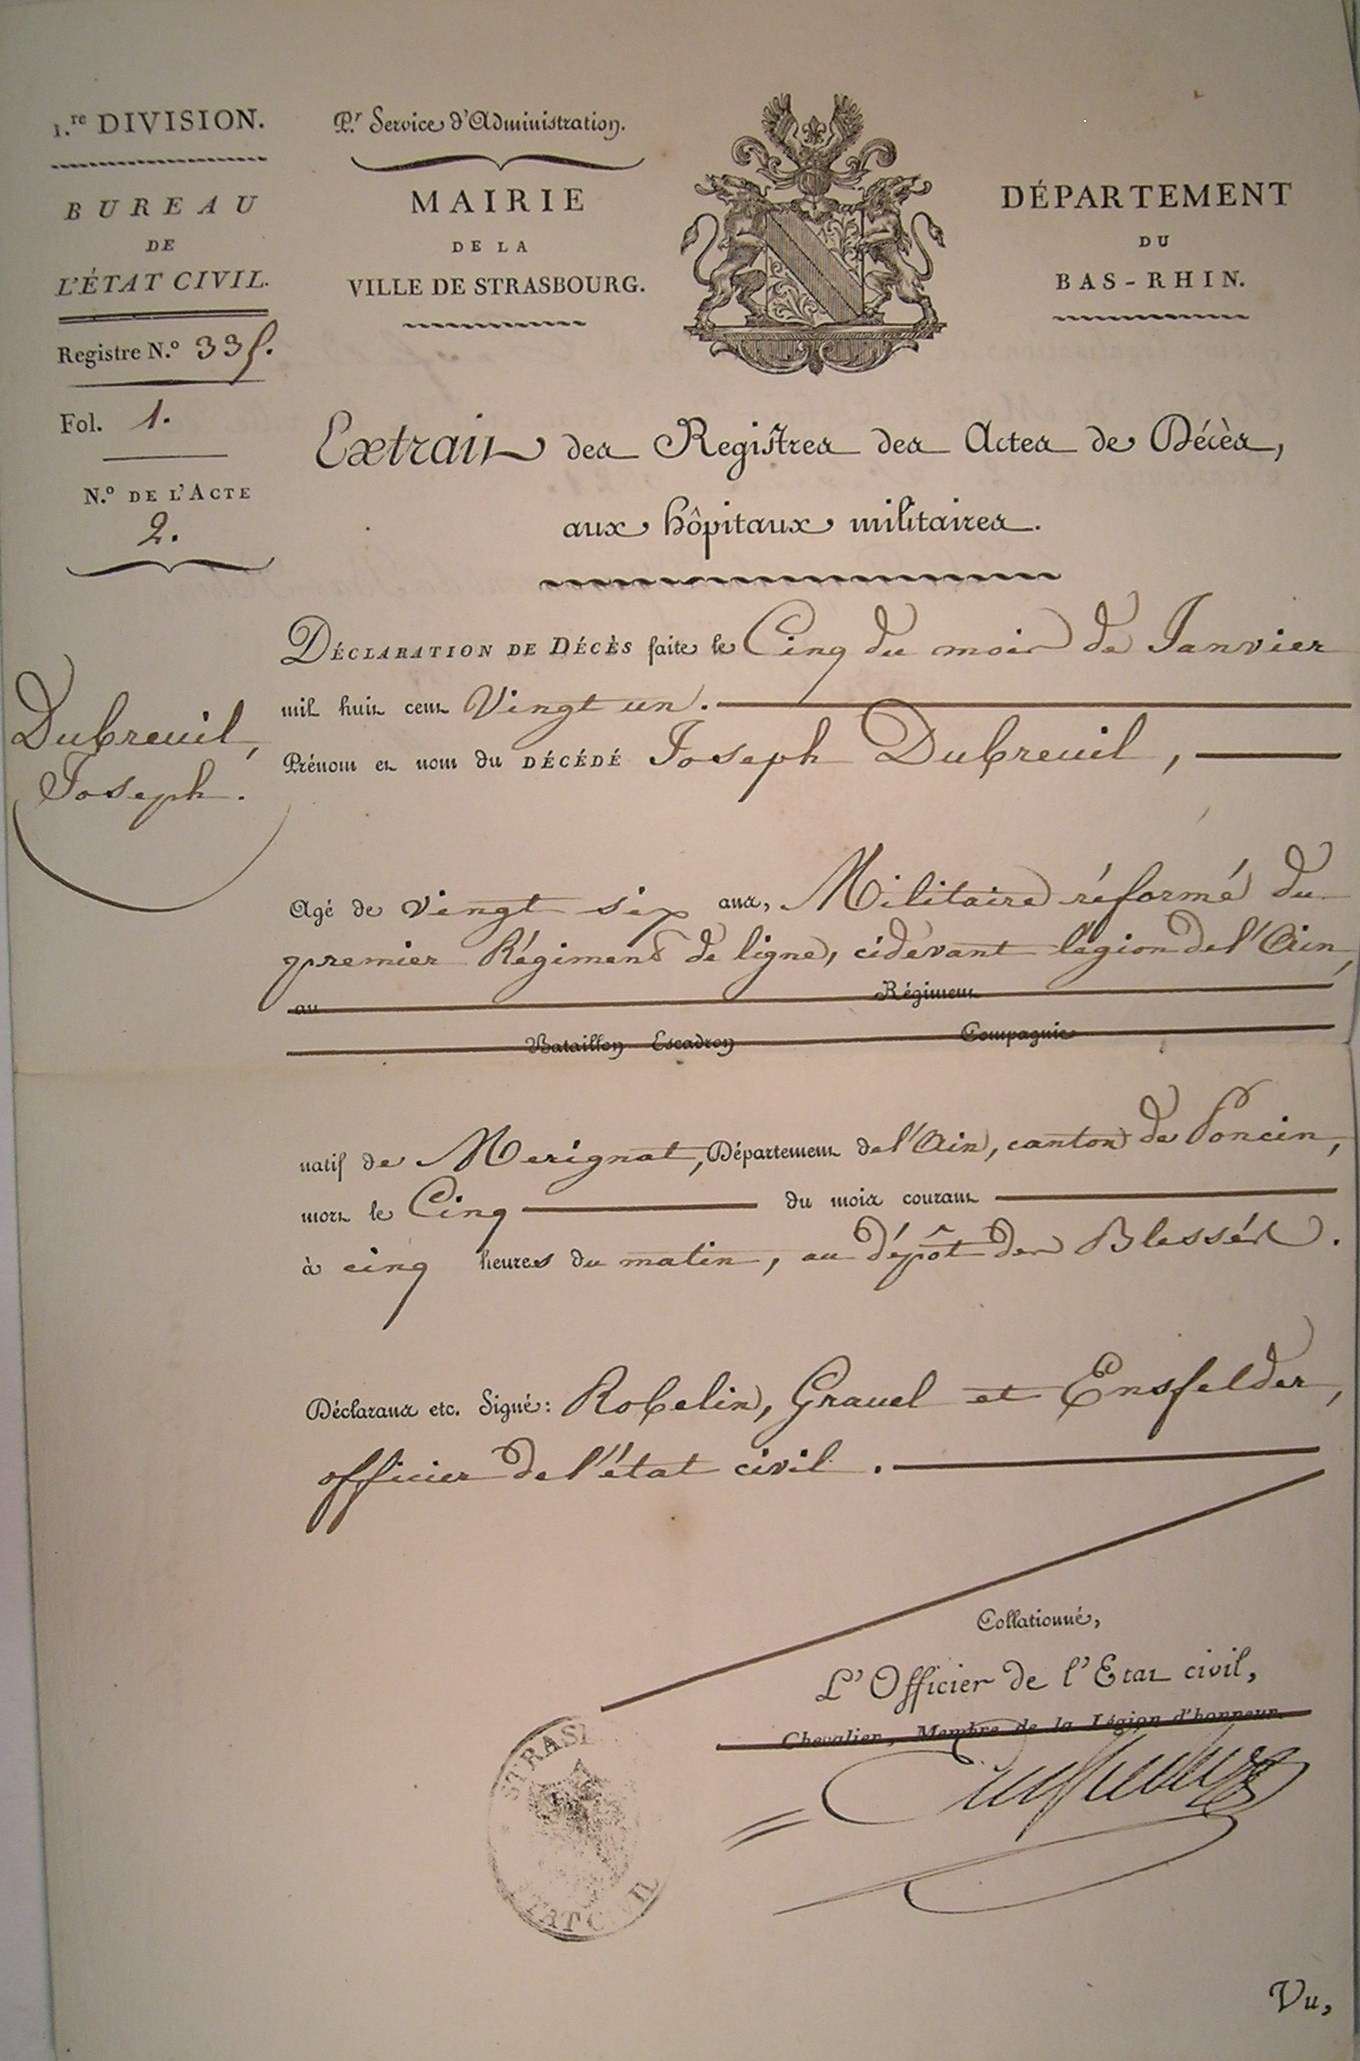 1.re DIVISION.
BUREAU
DE
L'ÉTAT CIVIL.
Registre N.º 335.
Fol. 1.
N.º DE L'ACTE
2.
P.r Service d'Administration.
MAIRIE
DE LA
VILLE DE STRASBOURG.
DÉPARTEMENT
DU
BAS-RHIN.
Extrait des Registres des Actes de Décès,
aux hôpitaux militaires.
DÉCLARATION DE DÉCÈS faite le Cinq du mois de Janvier
mil huit cent Vingt un.
Dubreuil,
Joseph.
Prénom et nom du DÉCÉDÉ Joseph Dubreuil,
Agé de vingt six ans, Militaire réformé du
premier Régiment de ligne, cidevant légion de l'Ain,
au Régiment
Bataillon Escadron Compagnie
natif de Merignat, Département de l'Ain, canton de Poncin,
mort le Cinq du mois courant
à cinq heures du matin, au dépôt des Blessés.
Déclarans etc. Signé: Robelin, Gravel et Ensfelder,
officier de l'état civil.
Collationné,
L'Officier de l'Etat civil,
Chevalier, Membre de la Légion d'honneur.
Ensfelder
STRASB
ETAT CIVIL
Vu,